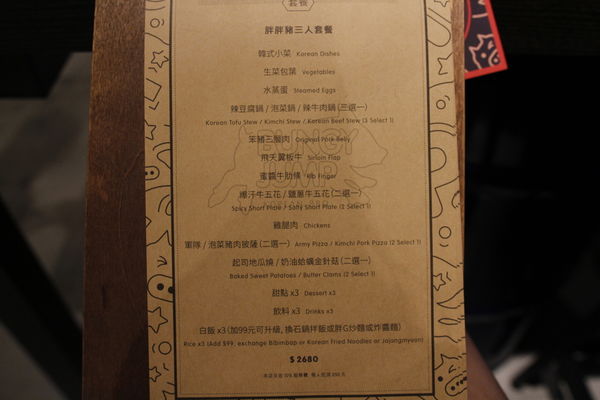 套餐
胖胖豬三人套餐
韓式小菜 Korean Dishes
生菜包葉 Vegetables
水蒸蛋 Steamed Eggs
辣豆腐鍋 / 泡菜鍋 / 辣牛肉鍋 (三選一)
Korean Tofu Stew / Kimchi Stew / Korean Beef Stew (3 Select 1)
笨豬三層肉 Original Pork Belly
飛天翼板牛 Sirloin Flap
蜜醬牛肋條 Rib Finger
爆汗牛五花 / 鹽蔥牛五花 (二選一)
Spicy Short Plate / Salty Short Plate (2 Select 1)
雞腿肉 Chickens
軍隊 / 泡菜豬肉披薩 (二選一) Army Pizza / Kimchi Pork Pizza (2 Select 1)
起司地瓜燒 / 奶油蛤蠣金針菇 (二選一)
Baked Sweet Potatoes / Butter Clams (2 Select 1)
甜點 x3 Dessert x3
飲料 x3 Drinks x3
白飯 x3 (加99元可升級, 換石鍋拌飯或胖G炒麵或炸醬麵)
Rice x3 (Add $99, exchange Bibimbap or Korean Fried Noodles or Jajangmyeon)
$ 2680
BUNGY
JUMP